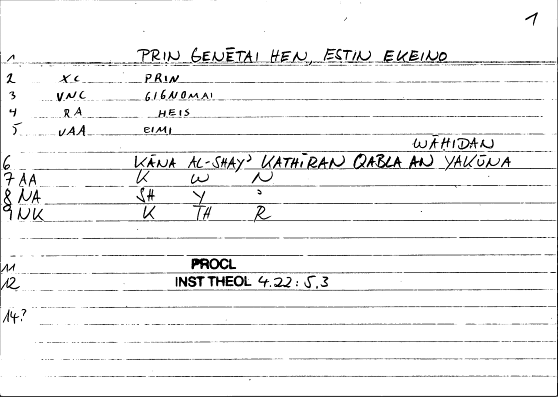 1
1 PRIN GENĒTAI HEN, ESTIN EKEINO
2 XC PRIN
3 VNC GIGNOMAI
4 RA HEIS
5 VAA EIMI
WĀḤIDAN
6 KĀNA AL-SHAYʾ KATHĪRAN QABLA AN YAKŪNA
7 AA K W N
8 NA SH Y ʾ
9 NK K TH R
11 PROCL
12 INST THEOL 4.22: 5.3
14?